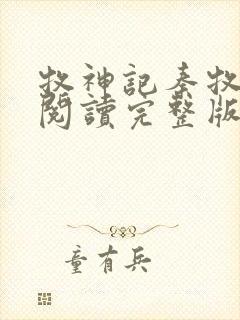 牧神記秦牧
閱讀完整版
童有兵